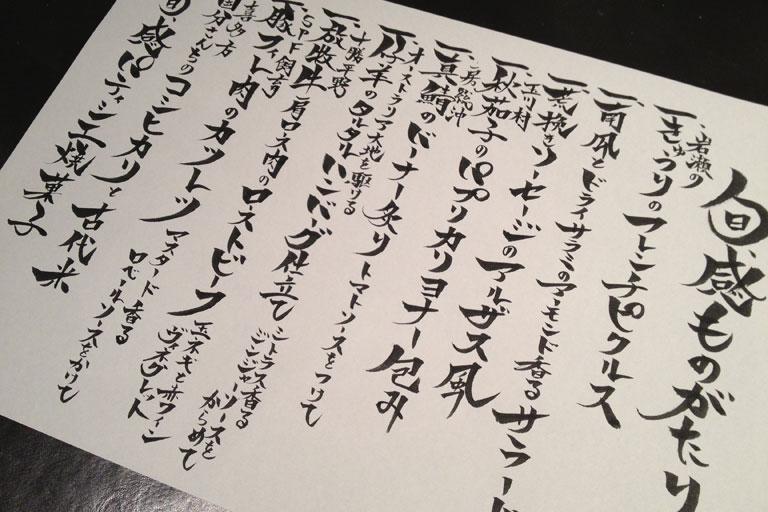 旬、感ものがたり
岩瀬の
一、きゅうりのフレンチピクルス
一、南瓜とドライサラミのアーモンド香るサラード
一、荒挽きソーセージのアルザス風
玉川村
一、秋茄子のパプリカリヨナー包み
房総沖
一、真鯖のドーナー炙り トマトソースをつけて
オーストラリア大地を駆ける
一、仔羊のタルタルハンバーグ仕立て シトラス香るジンジャーソースをからめて
十勝平野
一、放牧牛肩ロース肉のローストビーフ 玉ネギと赤ワインヴィネグレット
SPF飼育
一、豚フィレ肉のカツレツ マスタード香るロベールソースをかけて
喜多方
国分さんちのコシヒカリと古代米
旬、感パティシエ焼菓子